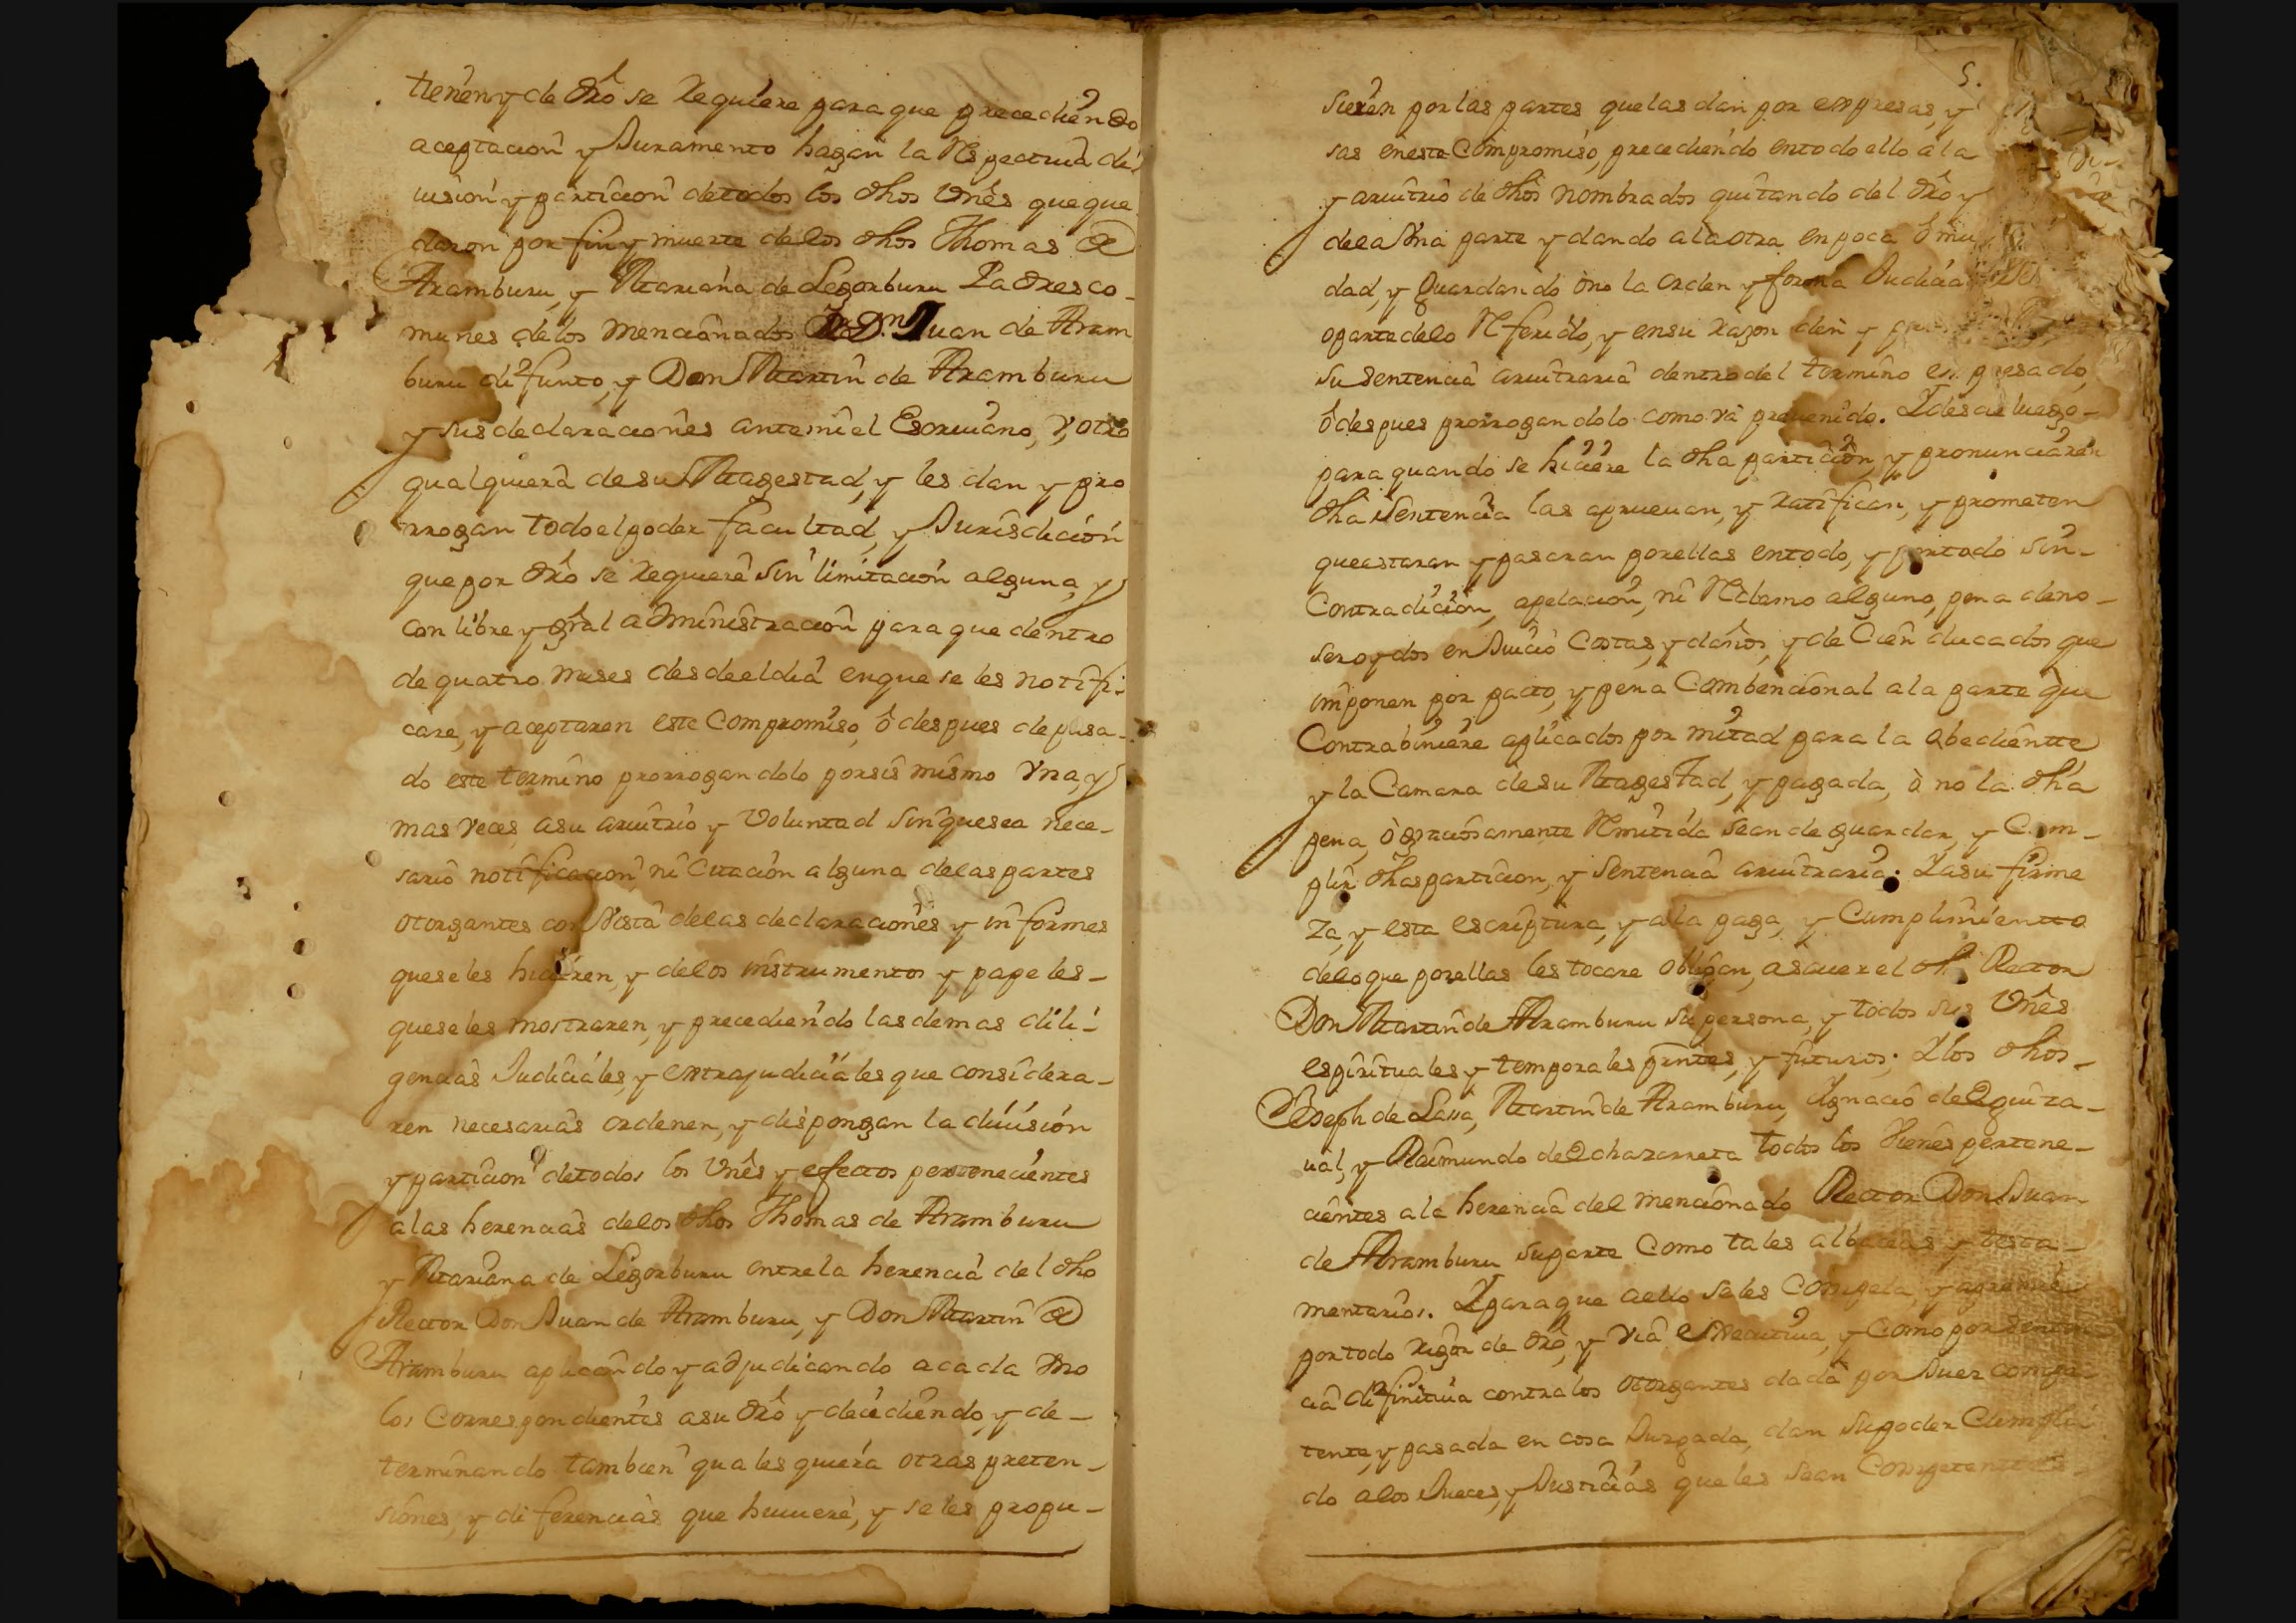 tienen y de dró se requiere para que precediendo
aceptacion y Juramento hagan la respectiua di-
uision y particion de todos los dhos Vnês que que
daron por fin y muerte de los dhos Thomas de
Aramburu, y Mariana de Legorburu Padres co-
munes de los mencionados Dn Juan de Aram
buru difunto, y Don Martin de Aramburu
y sus declaraciones ante mi el Escriuano, y, otro
qualquiera de su Magestad, y les dan y pro
rrogan todo el poder facultad, y Jurisdicion
que por dró se requiere sin limitacion alguna, y
con libre y gral administracion para que dentro
de quatro meses desde el dia en que se les notifi-
care, y aceptaren este Compromiso, ò despues de pasa-
do este termino prorrogandolo por sis mismo vna, y
mas veces, a su aruitrio y Voluntad sin que sea nece-
sario notificacion, ni Citacion alguna de las partes
otorgantes con vista de las declaraciones y informes
que se les hicieren, y de los instrumentos y papeles-
que se les mostraren, y precediendo las demas dili-
gencias Judiciales, y extrajudiciales que considera-
ren necesarias ordenen, y dispongan la diuision
y particion de todos los Vnês y efectos pertenecientes
a las herencias de los dhos Thomas de Aramburu
y Mariana de Legorburu entre la herencia del dho
Rector Don Juan de Aramburu, y Don Martin de
Aramburu aplicando y adjudicando a cada vno
los Correspondientes a su dró y decidiendo, y de-
terminando tambien quales quiera otras preten-
siones, y diferencias que huuiere, y se les propu-
5.
sieren por las partes que las dan por expresas, y
sas en este Compromiso, precediendo en todo ello a la
y aruitrio de dhos nombrados quitando del dró y
de la vna parte y dando a la otra en poca ò mu
dad, y Guardando ò no la orden y forma Judicia
o parte de lo referido, y en su razon den y
su sentencia aruitraria dentro del termino expresado,
ò despues prorrogandolo como và preuenido. Y desde luego-
para quando se hiciere la dha particion, y pronunciaren
dha Sentencia las aprueuan, y ratifican, y prometen
que estaran y pasaran por ellas en todo, y por todo sin-
Contradicion, apelacion, ni reclamo alguno, pena de no-
ser oydos en Juicio Costas, y daños, y de Cien ducados que
imponen por pacto, y pena Combencional a la parte que
Contrabiniere aplicados por mitad para la obedientte
y la Camara de su Magestad, y pagada, ò no la dha
pena, ò graciosamente remitida sean de guardar, y Cum-
plir dhas particion, y sentencia aruitraria. Y a su firme
za, y esta escriptura, y a la paga, y Cumplimientto
de lo que por ellas les tocare obligan, a sauer el dho Rector
Don Martin de Aramburu su persona, y todos sus Vnês
espirituales y temporales przntes, y futuros; Y los dhos-
Joseph de Lassa, Martin de Aramburu, Ygnacio de Eguiza-
ual, y Raimundo de Echazarreta todos los Vienes pertene-
cientes a la herencia del mencionado Rector Don Juan
de Aramburu su parte Como tales albaceas y testa-
mentarios. Y para que a ello se les Compela, y apremie
por todo rigor de dró, y via executiua, y Como por senten
cia difinitiua contra los otorgantes dada por Juez compe-
tente, y pasada en cosa Juzgada, dan su poder Cumpli-
do a los Jueces, y Justicias que les sean Competentes